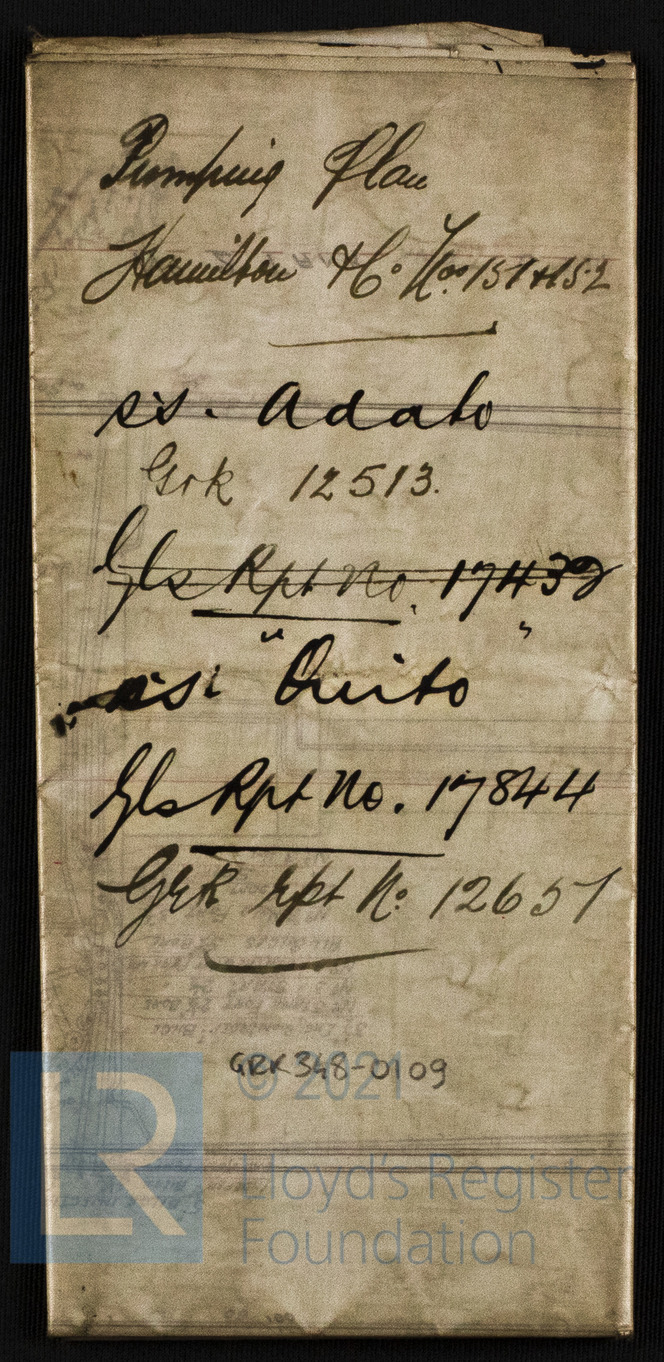 Pumping Plan
Hamilton & Co Nos. 151 & 152
ss. Adato
Grk 12513.
Gls Rpt No. 17432
ss. "Quito"
Gls Rpt No. 17844
Grk rpt No 12657
GRK348-0109
© 2021
LR
Lloyd's Register
Foundation